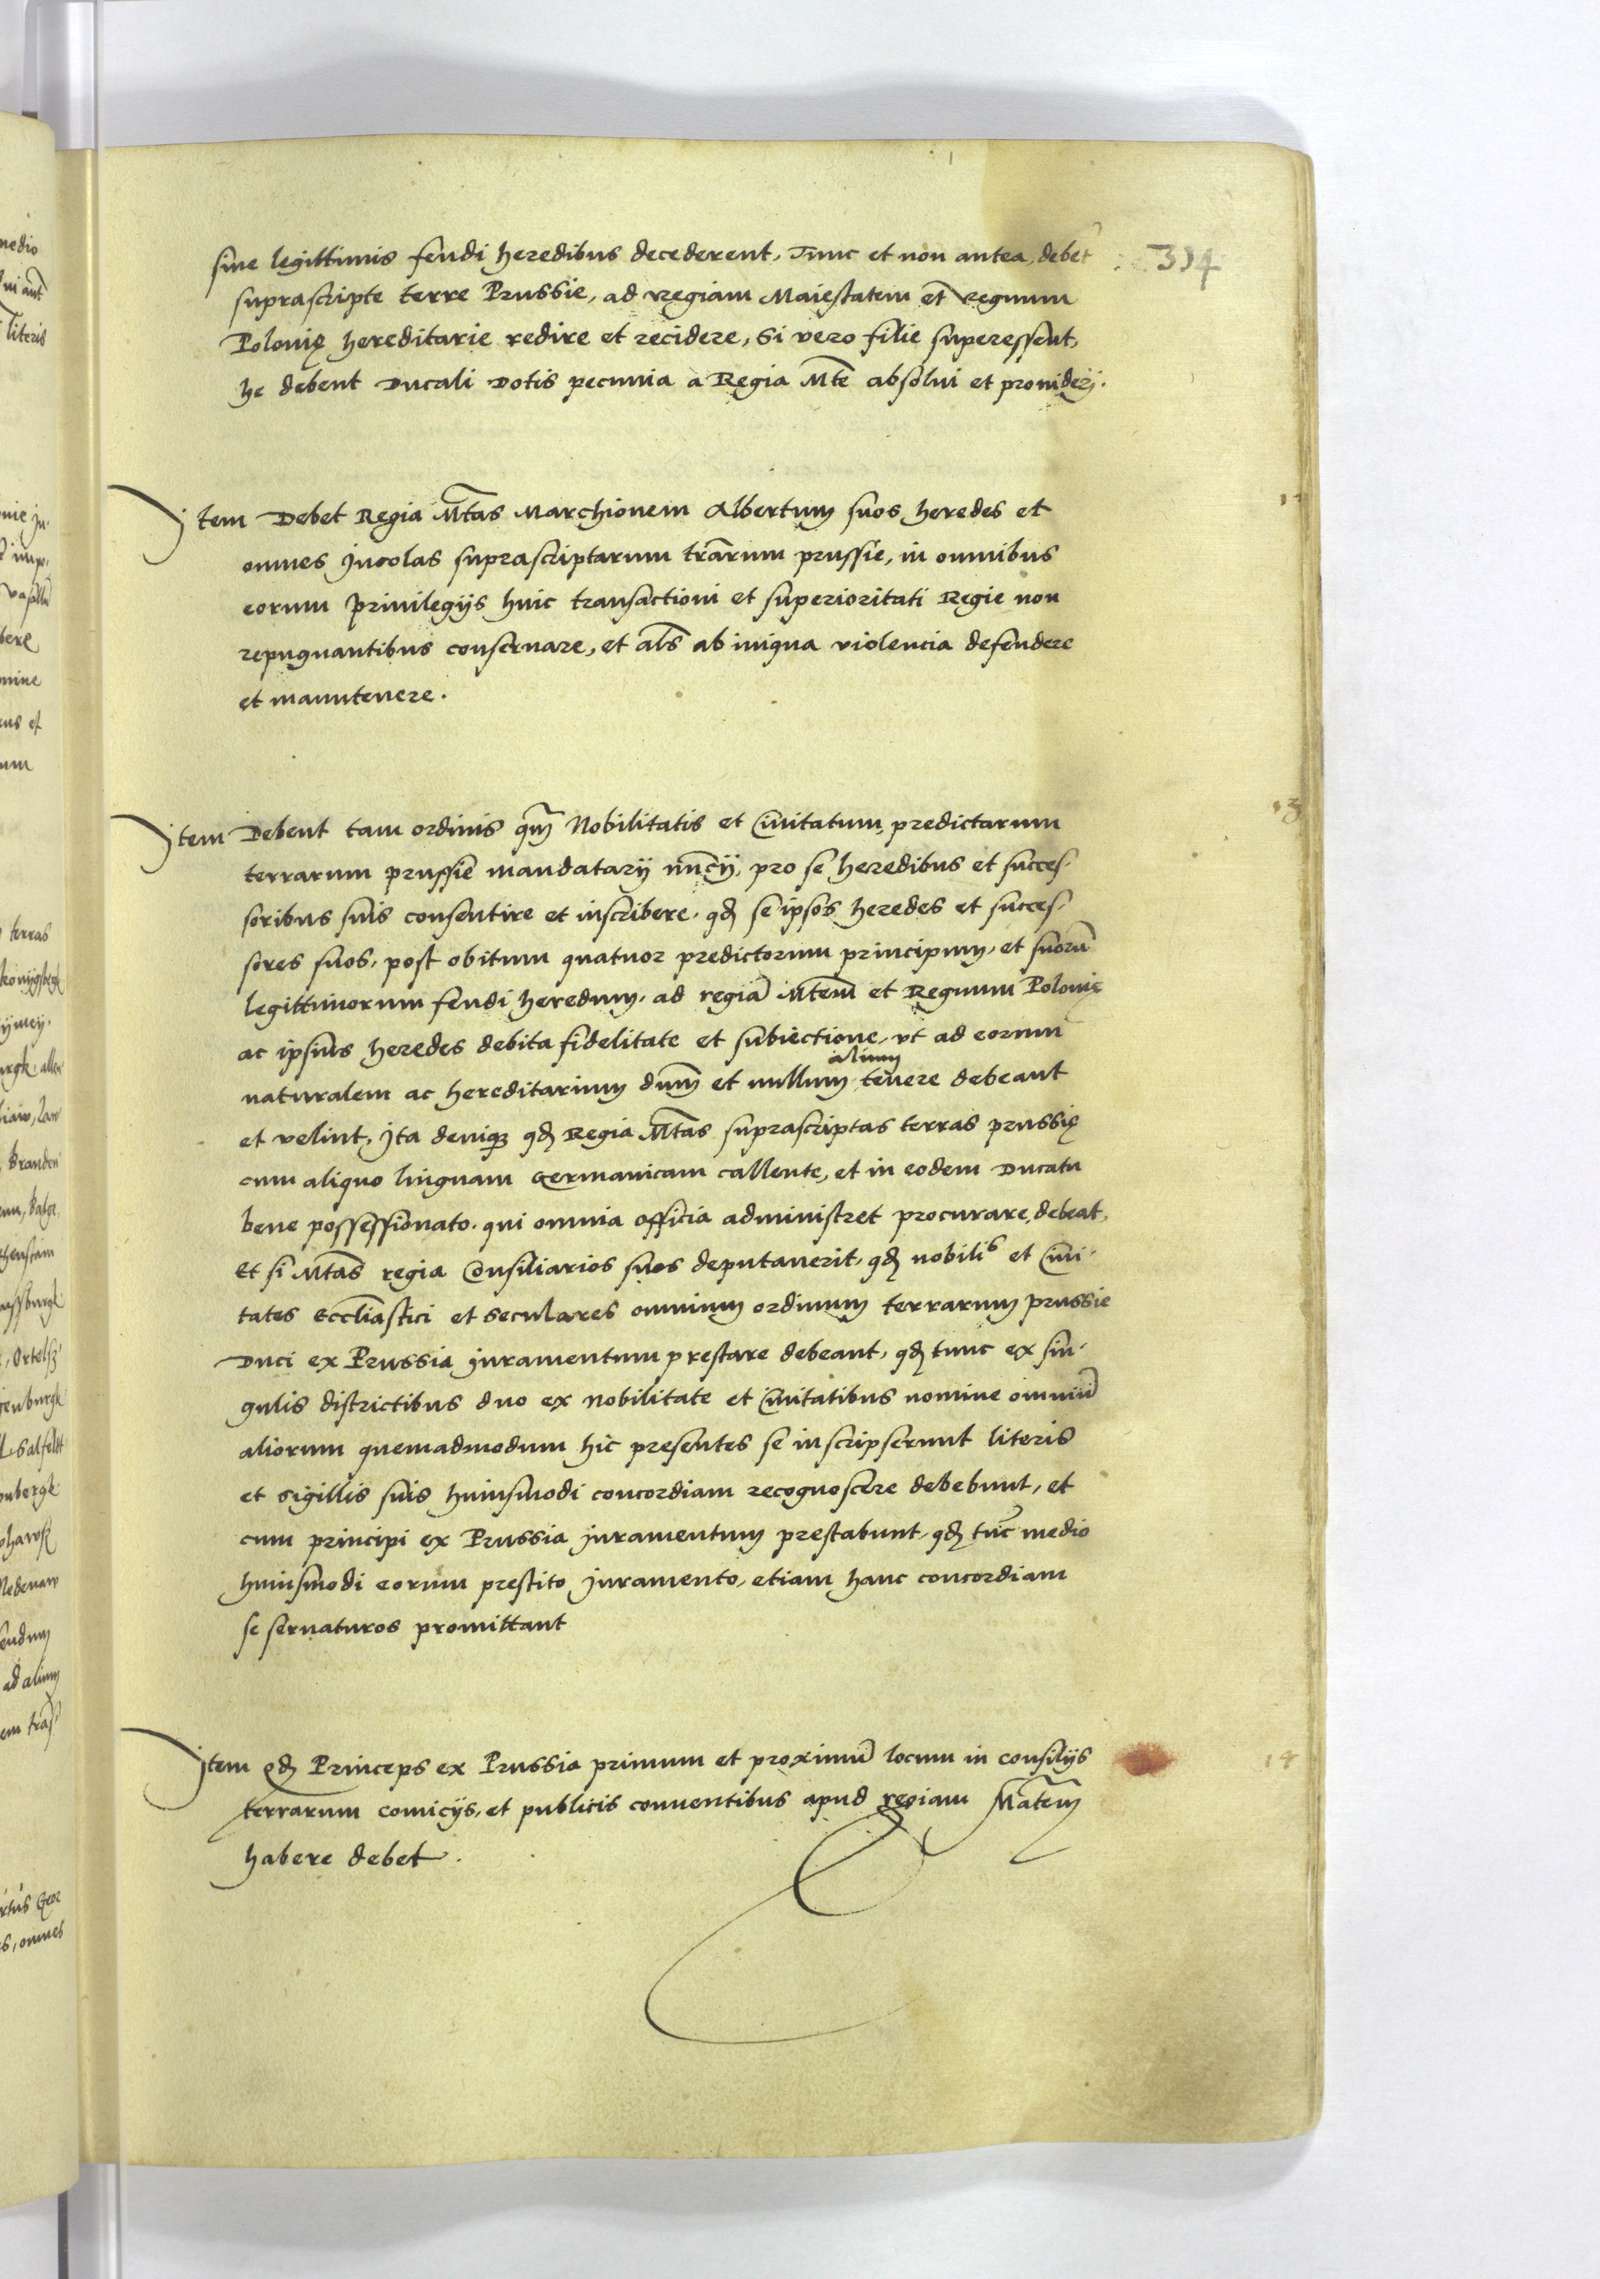 334
sine legittimis feudi heredibus decederent, Tunc et non antea, debet
suprascripte terre Prussie, ad regiam Maiestatem et regnum
Polonię hereditarie redire et recidere, Si vero filie superessent,
he debent Ducali Dotis pecunia a Regia Mte absolui et prouideri.
Jtem Debet Regia Mtas Marchionem Albertum suos heredes et
omnes Jncolas suprascriptarum trarum prussie, in omnibus
eorum Priuilegijs huic transactioni et superioritati Regie non
repugnantibus conseruare, et als ab iniqua violencia defendere
et manutenere.
Jtem Debent tam ordinis qm Nobilitatis et Ciuitatum, predictarum
terrarum prussie mandatarij nuncij, pro se heredibus et succes-
soribus suis consentire et inscribere, qd se ipsos heredes et succes-
sores suos, post obitum quatuor predictorum principum, et suoru
legittimorum feudi heredum, ad regia Mtem et Regnum Polonię
ac ipsius heredes debita fidelitate et subiectione, vt ad eorum
naturalem ac hereditarium dnm et nullum alium tenere debeant
et velint, Jta deniq qd Regia Mtas suprascriptas terras prussię
cum aliquo linguam Germanicam callente, et in eodem Ducatu
bene possessionato, qui omnia officia administret procurare, debeat,
Et si Mtas regia Consiliarios suos deputauerit, qd nobilis et Ciui-
tates Eccliastici et seculares omnium ordinum terrarum prussie
Duci ex Prussia Juramentum prestare debeant, qd tunc ex sin-
gulis districtibus duo ex Nobilitate et Ciuitatibus nomine omniu
aliorum quemadmodum hic presentes se inscripserunt literis
et Sigillis suis huiusmodi concordiam recognoscere debebunt, et
cum principi ex Prussia Juramentum prestabunt, qd tuc medio
huiusmodi eorum prestito Juramento, etiam hanc concordiam
se seruaturos promittant
Jtem qd Princeps ex Prussia primum et proximu locum in consilijs
terrarum comicijs, et publicis conuentibus apud regiam Matem
habere debet.